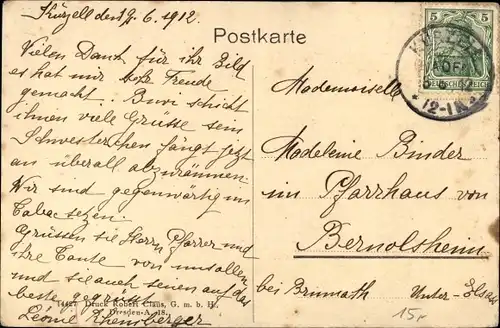 Kürzell den 17. 6. 1912.
Postkarte
Vielen Dank für ihr Bild
es hat mir große Freude
gemacht. Buvi schickt
ihnen viele Grüsse sein
Schwesterchen fangt jetzt
an überall abzuräumen.
Wir sind gegenwärtig im
Tabac setzen.
Grüssen sie Herrn Pfarrer und
ihre Tante von uns allen
und sie auch seien auf das
beste gegrüsst
Léonie
Druck Robert Claus, G. m. b. H.,
Dresden-A. 18.
5 5
DEUTSCHES REICH
12-1
Mademoiselle
Madeleine Binder
im Pfarrhaus von
Bernolsheim
bei Brumath Unter-Elsaß
15,-